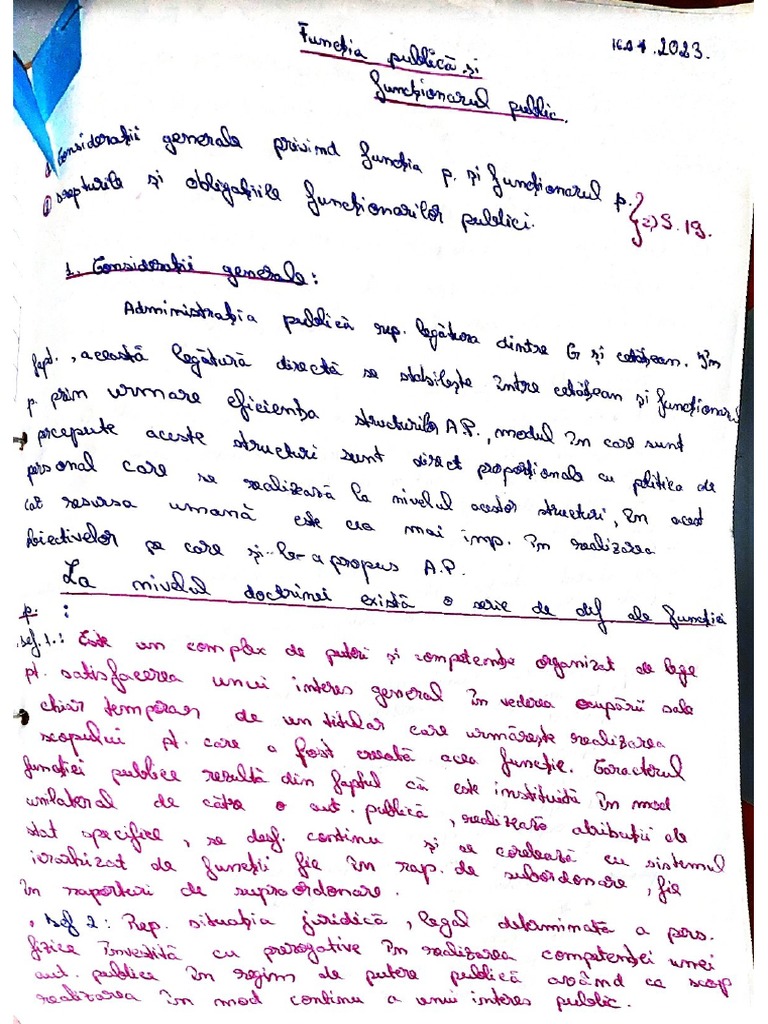 Funcția publică și
16.04.2023.
funcționarul public.
Considerații generale privind funcția p. și funcționarul p.
Drepturile și obligațiile funcționarilor publici.
S. 19.
1. Considerații generale:
Administrația publică rep. legătura dintre G și cetățean. În
fapt, această legătură directă se stabilește între cetățean și funcționarul
p. prin urmare eficiența structurilor A.P., modul în care sunt
precepute aceste structuri sunt direct proporționale cu politica de
personal care se realizează la nivelul acestor structuri, în acest
cat resursa umană este cea mai imp. în realizarea
obiectivelor pe care și-le-a propus A.P.
La nivelul doctrinei există o serie de def ale funcției
p. :
Def. 1.: Este un complex de puteri și competențe organizat de lege
pt. satisfacerea unui interes general în vederea ocupării sale
chiar temporar de un titular care urmărește realizarea
scopului pt. care a fost creată acea funcție. Caracterul
funcției publice rezultă din faptul că este instituită în mod
unilateral de către o aut. publică, realizează atribuții ale
stat specifice, se desf. continu și se corelează cu sistemul
ierarhizat de funcții fie în rap. de subordonare, fie
în raporturi de supraordonare.
Def 2: Rep. situația juridică, legal determinată a pers.
fizice învestită cu prerogative în realizarea competenței unei
aut. publice în regim de putere publică având ca scop
realizarea în mod continu a unui interes public.